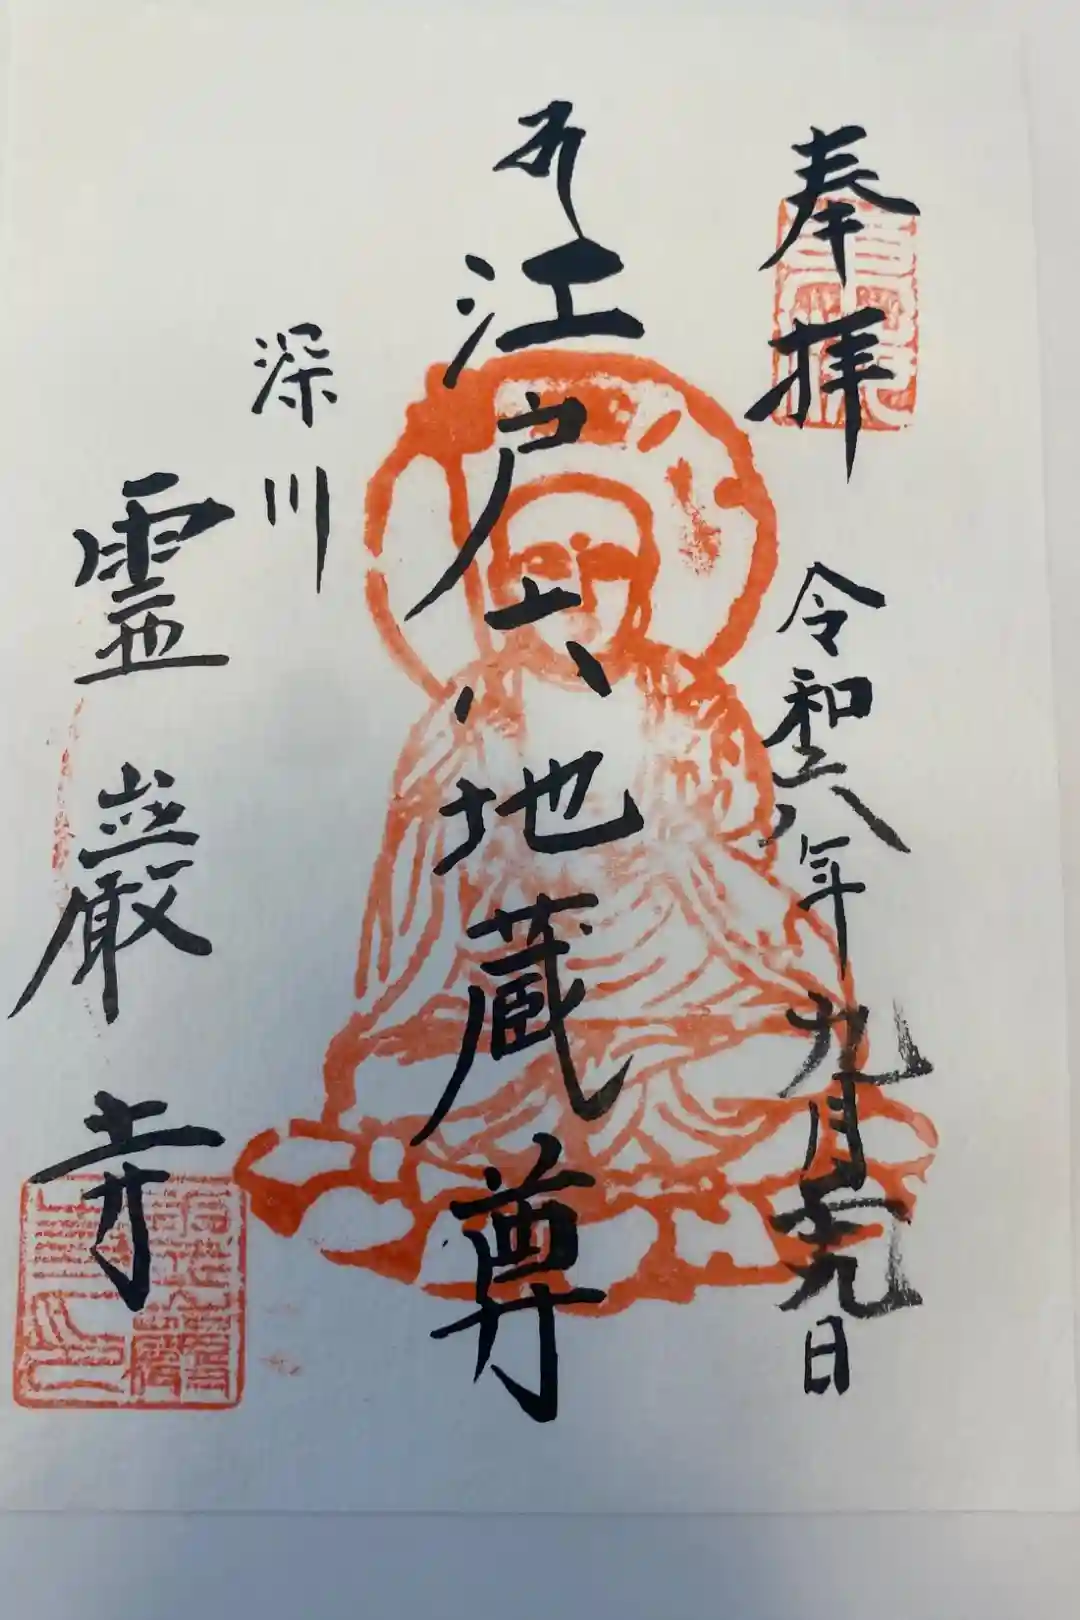 奉拝
令和六年九月九日
江戸六地蔵尊
深川
霊巌寺